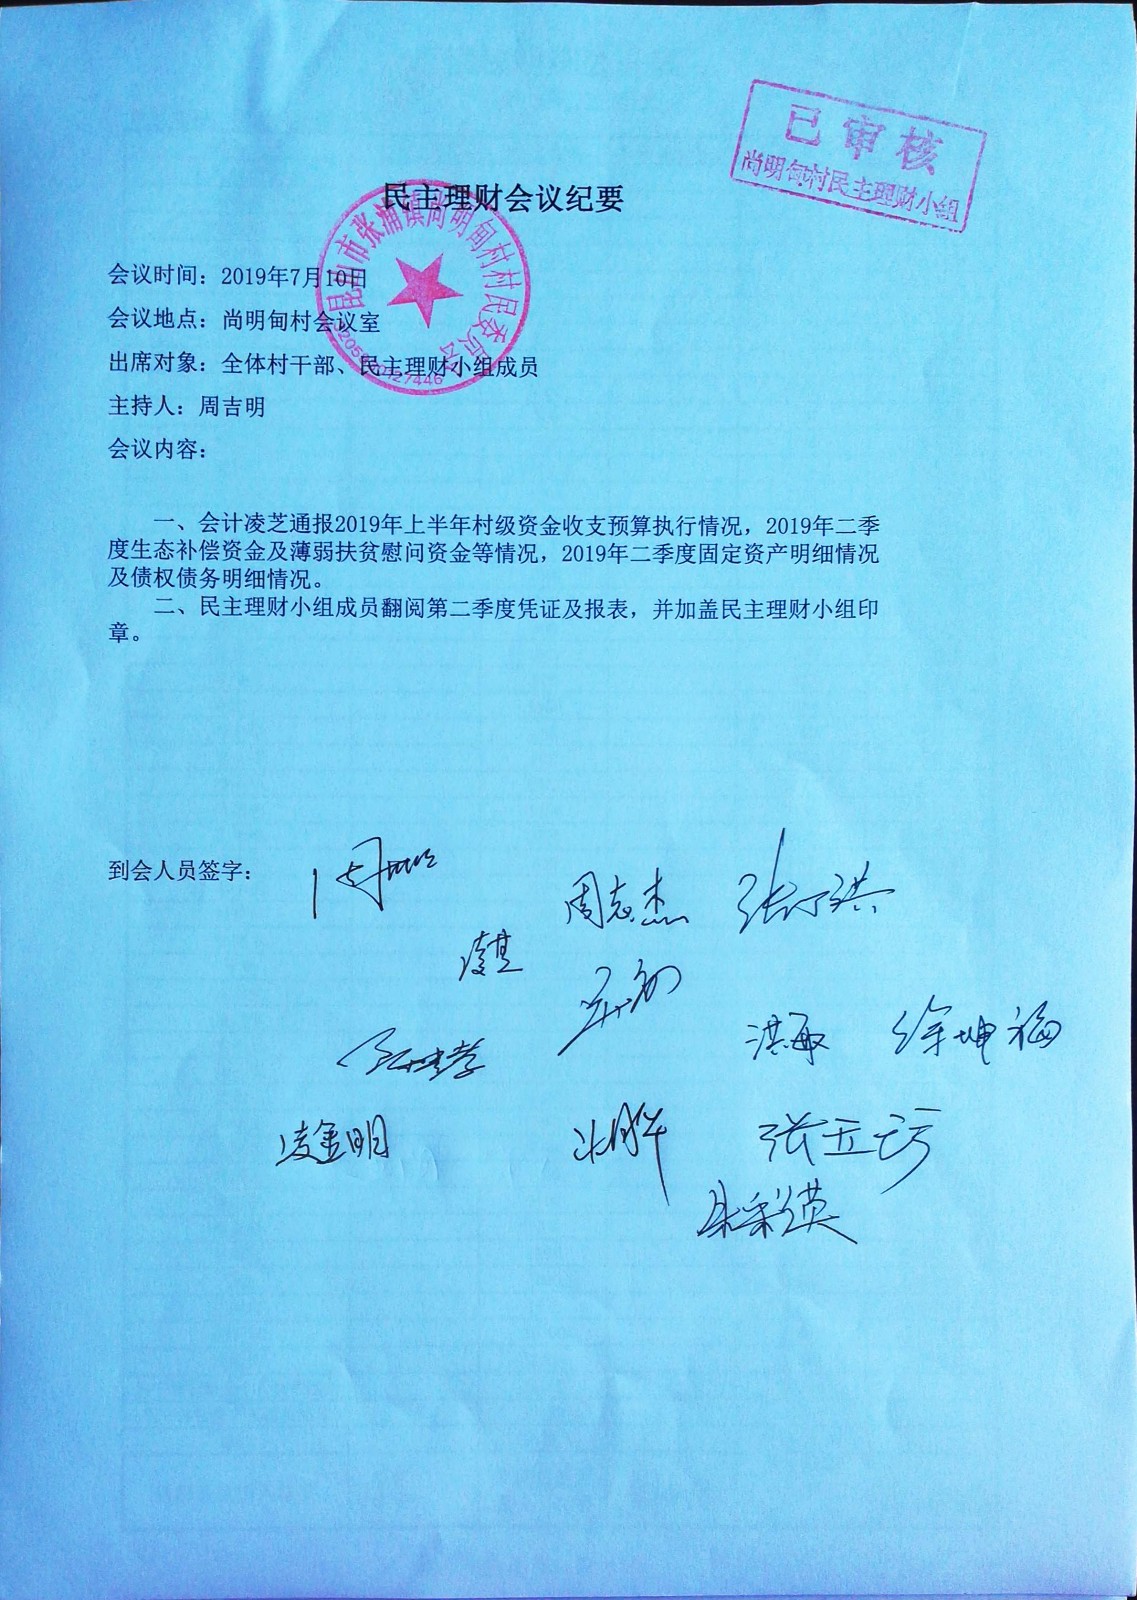 已审核
尚明甸村民主理财小组
民主理财会议纪要
昆山市张浦镇尚明甸村村民委员会
会议时间：2019年7月10日
会议地点：尚明甸村会议室
出席对象：全体村干部、民主理财小组成员
主持人：周吉明
会议内容：
一、会计凌芝通报2019年上半年村级资金收支预算执行情况，2019年二季
度生态补偿资金及薄弱扶贫慰问资金等情况，2019年二季度固定资产明细情况
及债权债务明细情况。
二、民主理财小组成员翻阅第二季度凭证及报表，并加盖民主理财小组印
章。
到会人员签字：
周志杰
洪敏 徐坤福
凌金明
朱彩英